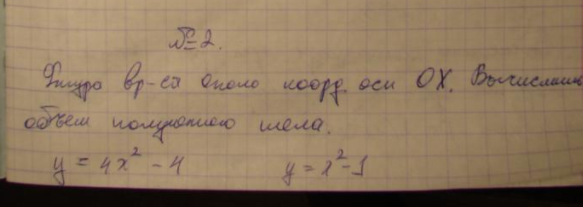 №2.
Фигура вр-ся около коорд. оси OX. Вычислить
объем полученного тела.
y = 4x² - 4 y = x² - 1